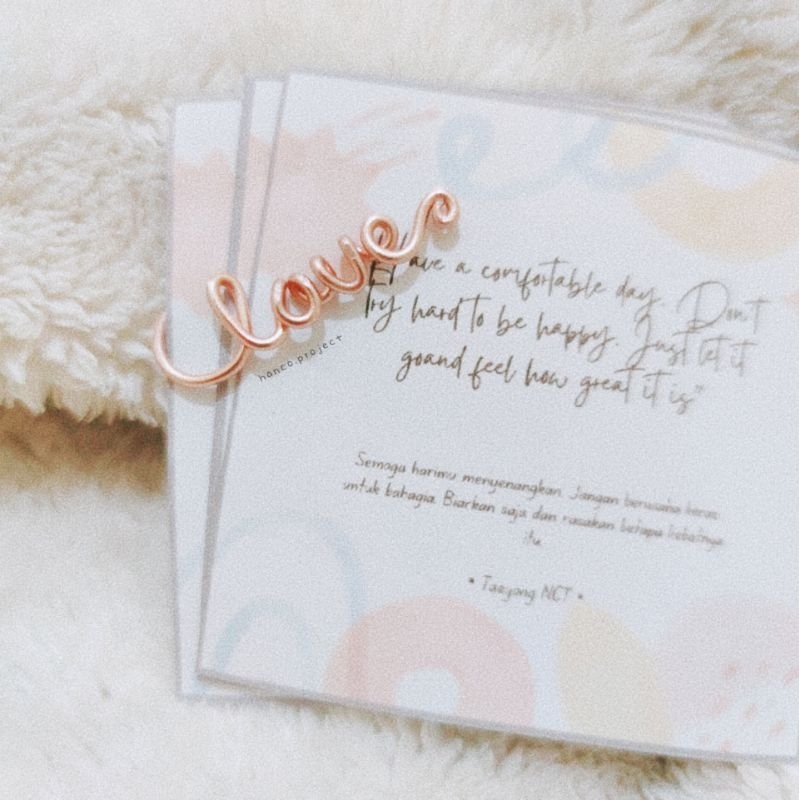 love
hanco.project
Have a comfortable day. Don't
Try hard to be happy. Just let it
goand feel how great it is"
Semoga harimu menyenangkan. Jangan berusaha keras
untuk bahagia. Biarkan saja dan rasakan betapa hebatnya
itu
• Taeyong NCT •